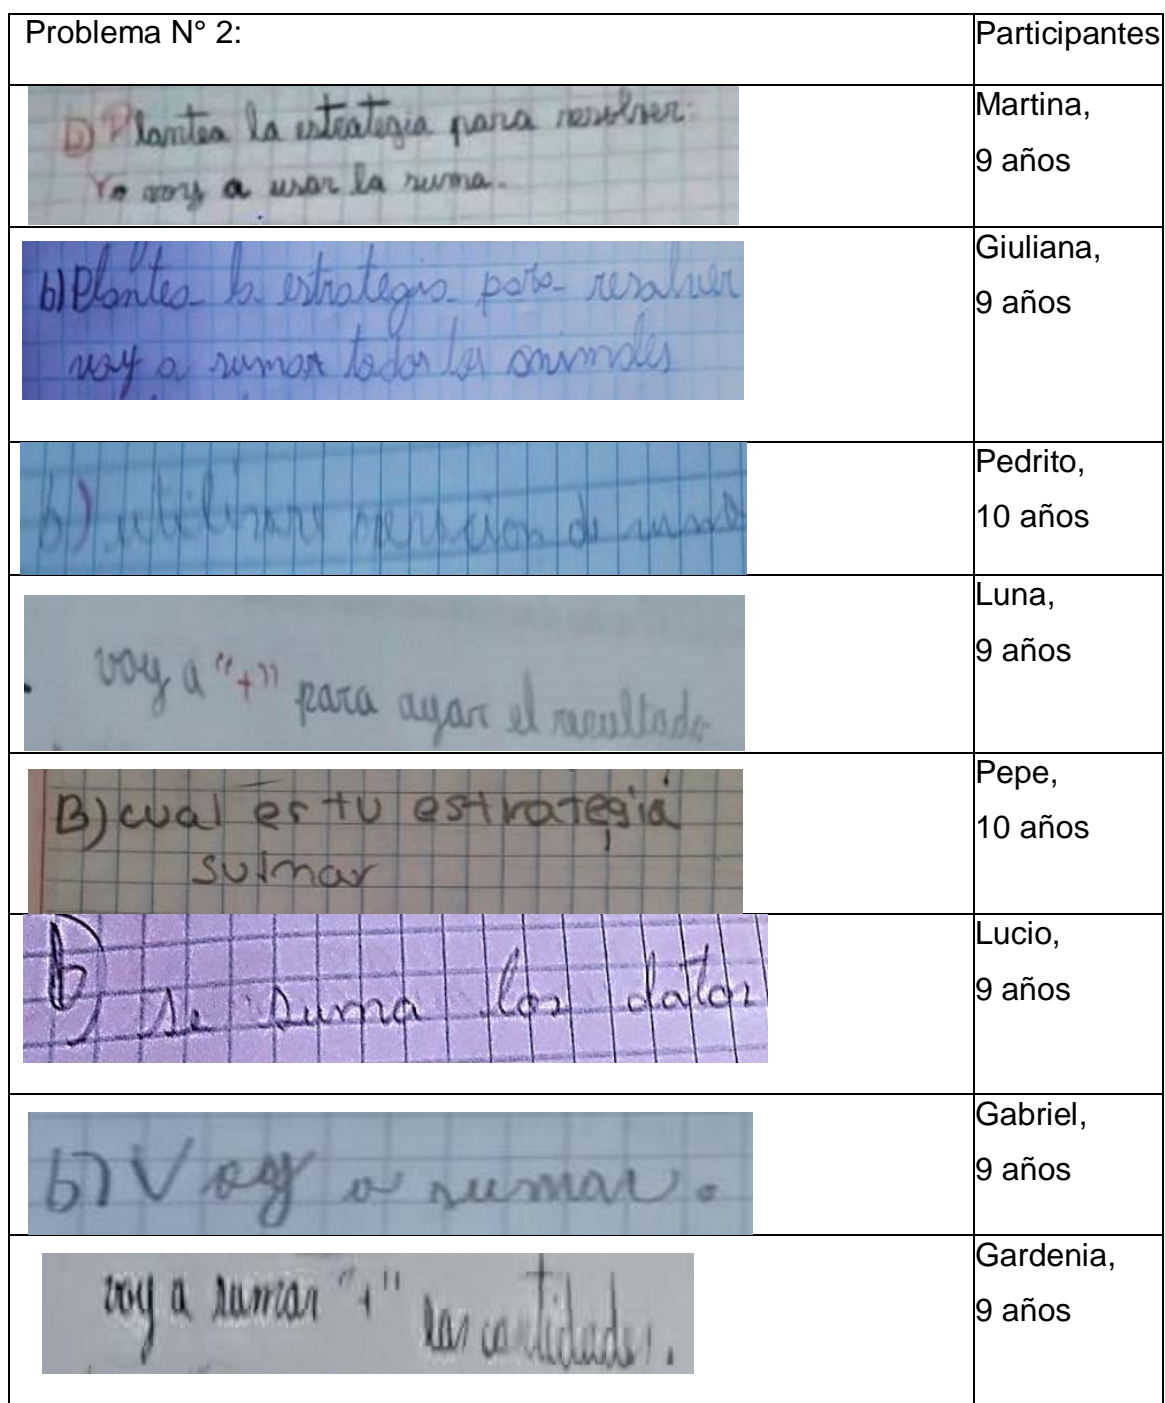 Problema N° 2:
Participantes
D) Plantea la estrategia para resolver:
Yo voy a usar la suma.
Martina,
9 años
b) Plantea la estrategia para resolver
voy a sumar todos los animales
Giuliana,
9 años
b) utilizare operacion de suma
Pedrito,
10 años
voy a "+" para ayar el resultado
Luna,
9 años
B) cual es tu estrategia
sumar
Pepe,
10 años
b) se suma los datos
Lucio,
9 años
b) Voy a sumar.
Gabriel,
9 años
voy a sumar "+" las cantidades.
Gardenia,
9 años